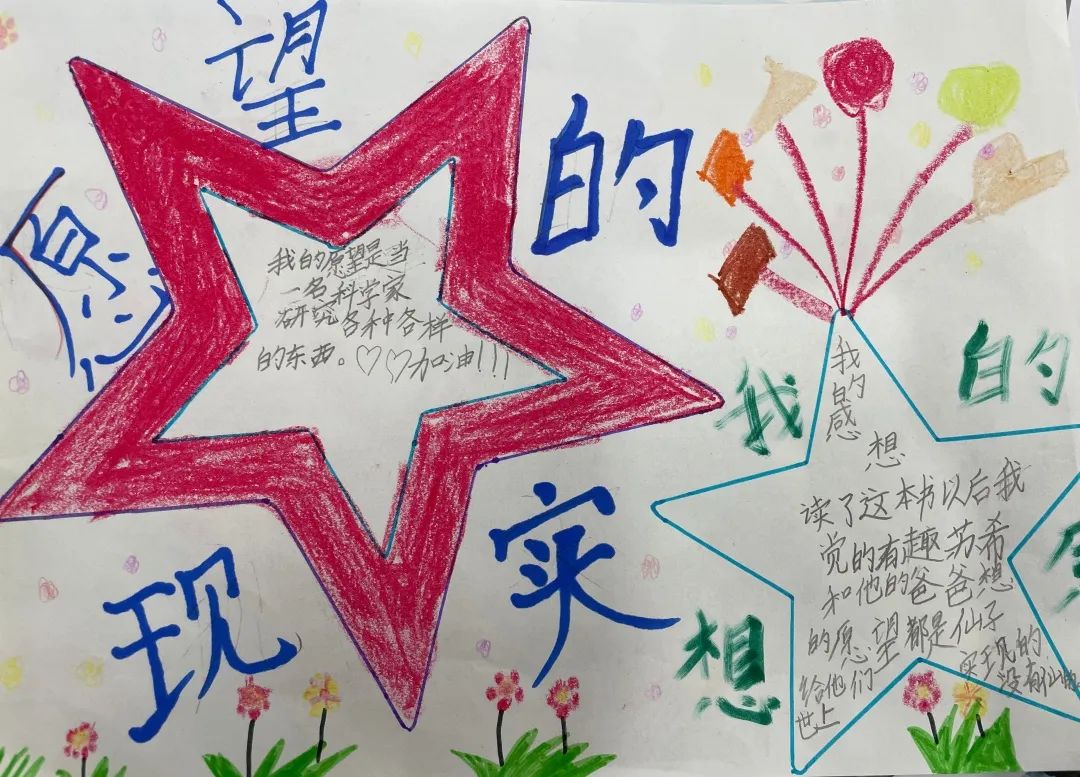 愿望的
我的愿望是当
一名科学家
研究各种各样
的东西。♡♡加油!!!
现实
我的
想
我的感想
读了这本书以后我
觉的有趣苏希
和他的爸爸想
的愿望都是仙子
给他们实现的
世上没有仙